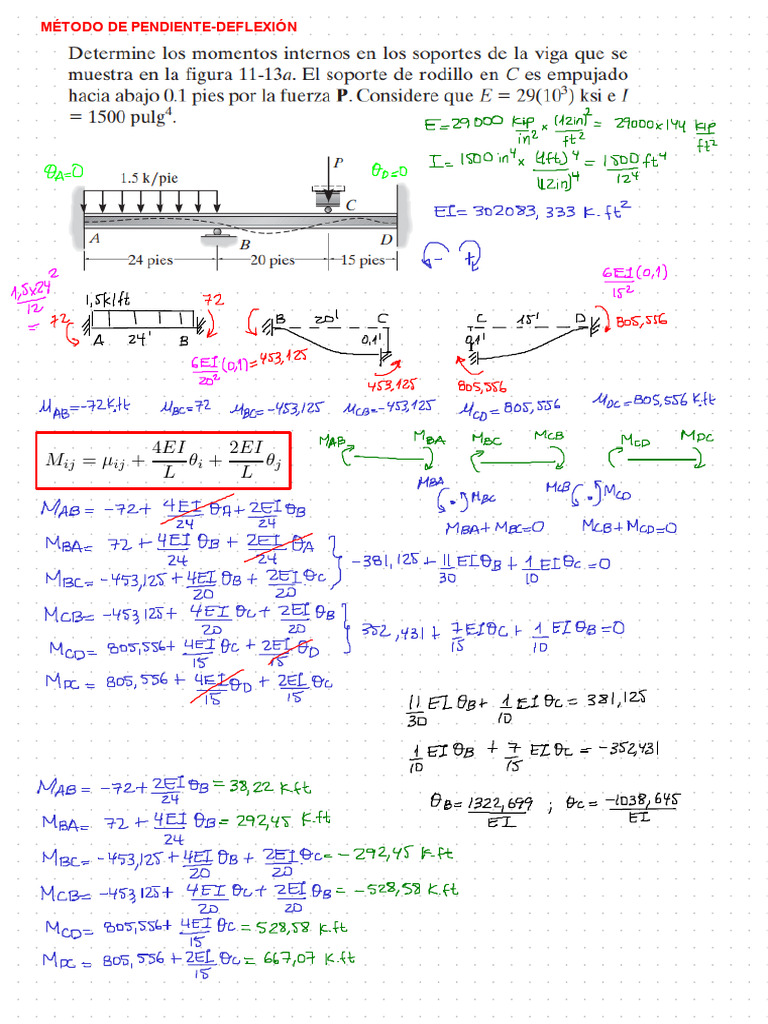 MÉTODO DE PENDIENTE-DEFLEXIÓN
Determine los momentos internos en los soportes de la viga que se
muestra en la figura 11-13a. El soporte de rodillo en C es empujado
hacia abajo 0.1 pies por la fuerza P. Considere que E = 29(10³) ksi e I
= 1500 pulg⁴.
E = 29000 kip/in² x (12in)²/ft² = 29000x144 kip/ft²
I = 1500 in⁴ x (1ft)⁴/(12in)⁴ = 1500 ft⁴/12⁴
EI = 302083,333 K.ft²
θA=0
θD=0
1.5 k/pie
P
C
A
B
D
24 pies
20 pies
15 pies
- +
1,5x24²/12 = 72
1,5k/ft
72
A 24' B
B 20' C
0,1'
6EI/20² (0,1) = 453,125
453,125
C 15' D
0,1'
6EI(0,1)/15²
805,556
805,556
μAB = -72 K.ft
μBC = 72
μBC = -453,125
μCB = -453,125
μCD = 805,556
μDC = 805,556 K.ft
Mij = μij + 4EI/L θi + 2EI/L θj
MAB MBA
MBC MCB
MCD MDC
MBA MBC
MCB MCD
MBA + MBC = 0
MCB + MCD = 0
MAB = -72 + 4EI/24 θA + 2EI/24 θB
MBA = 72 + 4EI/24 θB + 2EI/24 θA
MBC = -453,125 + 4EI/20 θB + 2EI/20 θC
-381,125 + 11/30 EIθB + 1/10 EIθC = 0
MCB = -453,125 + 4EI/20 θC + 2EI/20 θB
MCD = 805,556 + 4EI/15 θC + 2EI/15 θD
352,431 + 7/15 EIθC + 1/10 EIθB = 0
MDC = 805,556 + 4EI/15 θD + 2EI/15 θC
11/30 EIθB + 1/10 EIθC = 381,125
1/10 EIθB + 7/15 EIθC = -352,431
θB = 1322,699/EI ; θC = -1038,645/EI
MAB = -72 + 2EI/24 θB = 38,22 K.ft
MBA = 72 + 4EI/24 θB = 292,45 K.ft
MBC = -453,125 + 4EI/20 θB + 2EI/20 θC = -292,45 K.ft
MCB = -453,125 + 4EI/20 θC + 2EI/20 θB = -528,58 K.ft
MCD = 805,556 + 4EI/15 θC = 528,58 K.ft
MDC = 805,556 + 2EI/15 θC = 667,07 K.ft